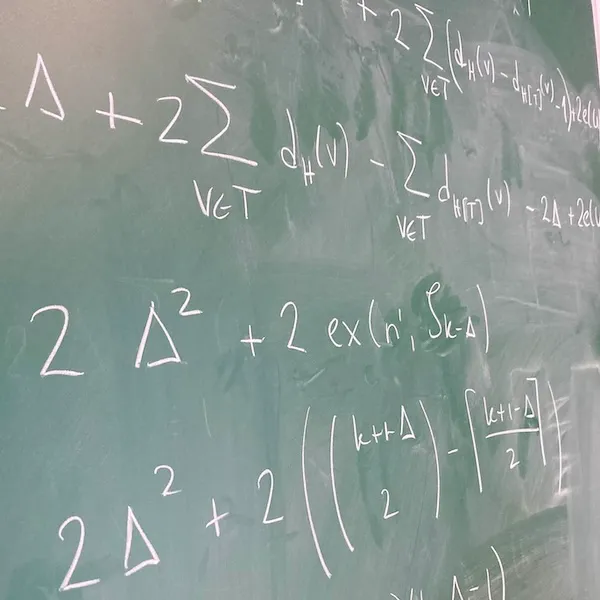 + 2 ∑_{v∈T} (d_H(v) - d_{H[T]}(v) - 1) + 2e(
- Δ + 2 ∑_{v∈T} d_H(v) - ∑_{v∈T} d_{H[T]}(v) - 2Δ + 2e(
2 Δ² + 2 ex(n', ζ_{k-Δ})
2 Δ² + 2 ( \binom{k+1-Δ}{2} - ⌈\frac{k+1-Δ}{2}⌉ )
Δ-1)